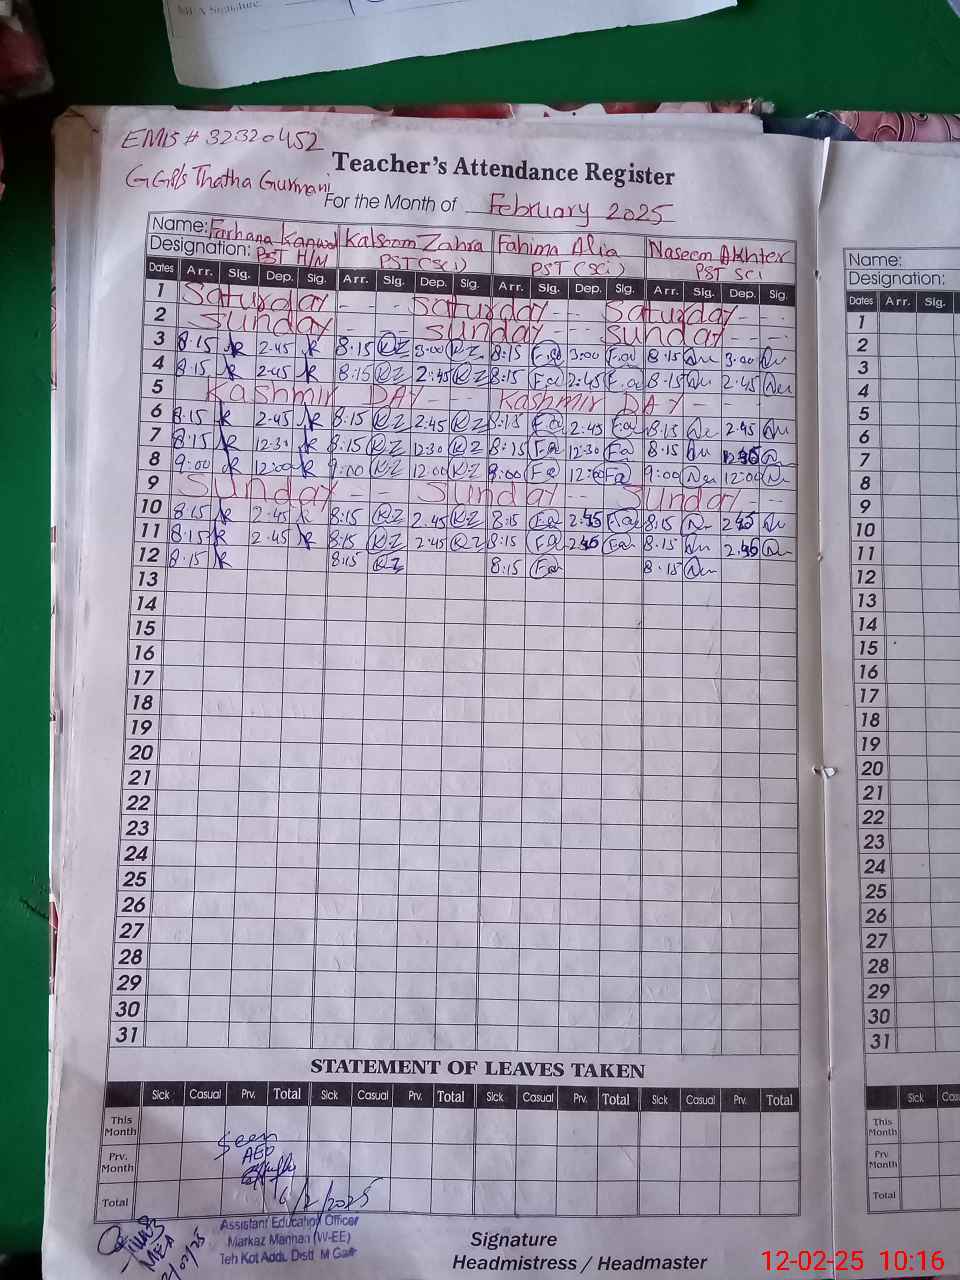 MEA Signature
EMIS # 32320452
Teacher's Attendance Register
GGPS Thatha Gurmani
For the Month of February 2025
Name: Farhana Kanwal Kalsoom Zahra Fahima Alia Naseem Akhter
Designation: PST H/M PST (Sci) PST (Sci) PST Sci
Dates Arr. Sig. Dep. Sig. Arr. Sig. Dep. Sig. Arr. Sig. Dep. Sig. Arr. Sig. Dep. Sig.
1 Saturday - - Saturday - - - Saturday - - -
2 Sunday - - Sunday - - - Sunday - - - -
3 8:15 2:45 8:15 KZ 3:00 KZ 8:15 Fa 3:00 Fa 8:15 3:00
4 8:15 2:45 8:15 KZ 2:45 KZ 8:15 Fa 2:45 Fa 8:15 2:45
5 Kashmir DAY - - - Kashmir DAY - - -
6 8:15 2:45 8:15 KZ 2:45 KZ 8:15 Fa 2:45 Fa 8:15 2:45
7 8:15 12:30 8:15 KZ 12:30 KZ 8:15 Fa 12:30 Fa 8:15
8 9:00 12:00 9:00 KZ 12:00 KZ 9:00 Fa 12:00 Fa 9:00 12:00
9 Sunday - - Sunday - - Sunday - - -
10 8:15 2:45 8:15 KZ 2:45 KZ 8:15 Fa 2:45 Fa 8:15 2:45
11 8:15 2:45 8:15 KZ 2:45 KZ 8:15 Fa 2:45 Fa 8:15 2:45
12 8:15 8:15 KZ 8:15 Fa 8:15
13
14
15
16
17
18
19
20
21
22
23
24
25
26
27
28
29
30
31
STATEMENT OF LEAVES TAKEN
Sick Casual Prv. Total Sick Casual Prv. Total Sick Casual Prv. Total Sick Casual Prv. Total
This Month
Prv. Month
Total
Seen
AEO
6/2/2025
Assistant Education Officer
Markaz Mannan (W-EE)
Teh Kot Addu Distt M Garh
MEA
Signature
Headmistress / Headmaster
Name:
Designation:
Dates Arr. Sig.
1
2
3
4
5
6
7
8
9
10
11
12
13
14
15
16
17
18
19
20
21
22
23
24
25
26
27
28
29
30
31
Sick
This Month
Prv. Month
Total
12-02-25 10:16